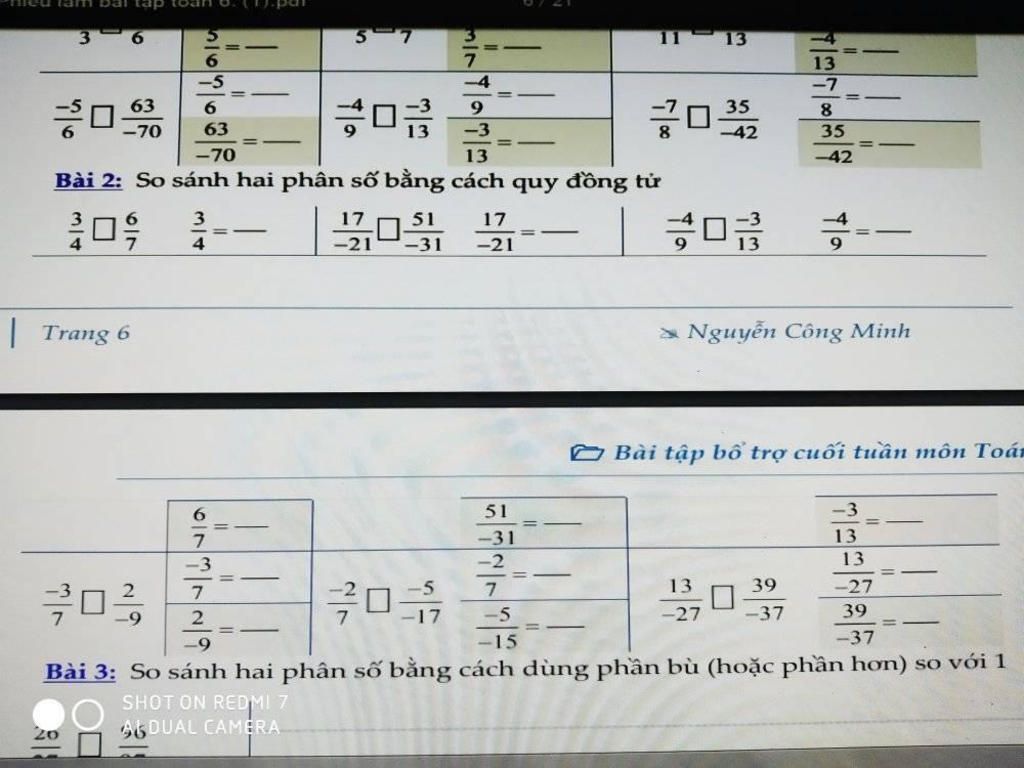 Phiếu làm bài tập toán 6. (1).pdf 6 / 21
3 □ 6 5/6 = — 5 □ 7 3/7 = — 11 □ 13 -4/13 = —
-5/6 □ 63/-70 -5/6 = — -4/9 □ -3/13 -4/9 = — -7/8 □ 35/-42 -7/8 = —
63/-70 = — -3/13 = — 35/-42 = —
Bài 2: So sánh hai phân số bằng cách quy đồng tử
3/4 □ 6/7 3/4 = — 17/-21 □ 51/-31 17/-21 = — -4/9 □ -3/13 -4/9 = —
Trang 6 Nguyễn Công Minh
Bài tập bổ trợ cuối tuần môn Toán
6/7 = — 51/-31 = — -3/13 = —
-3/7 □ 2/-9 -3/7 = — -2/7 □ -5/-17 -2/7 = — 13/-27 □ 39/-37 13/-27 = —
2/-9 = — -5/-15 = — 39/-37 = —
Bài 3: So sánh hai phân số bằng cách dùng phần bù (hoặc phần hơn) so với 1
SHOT ON REDMI 7
AI DUAL CAMERA
26 □ 96